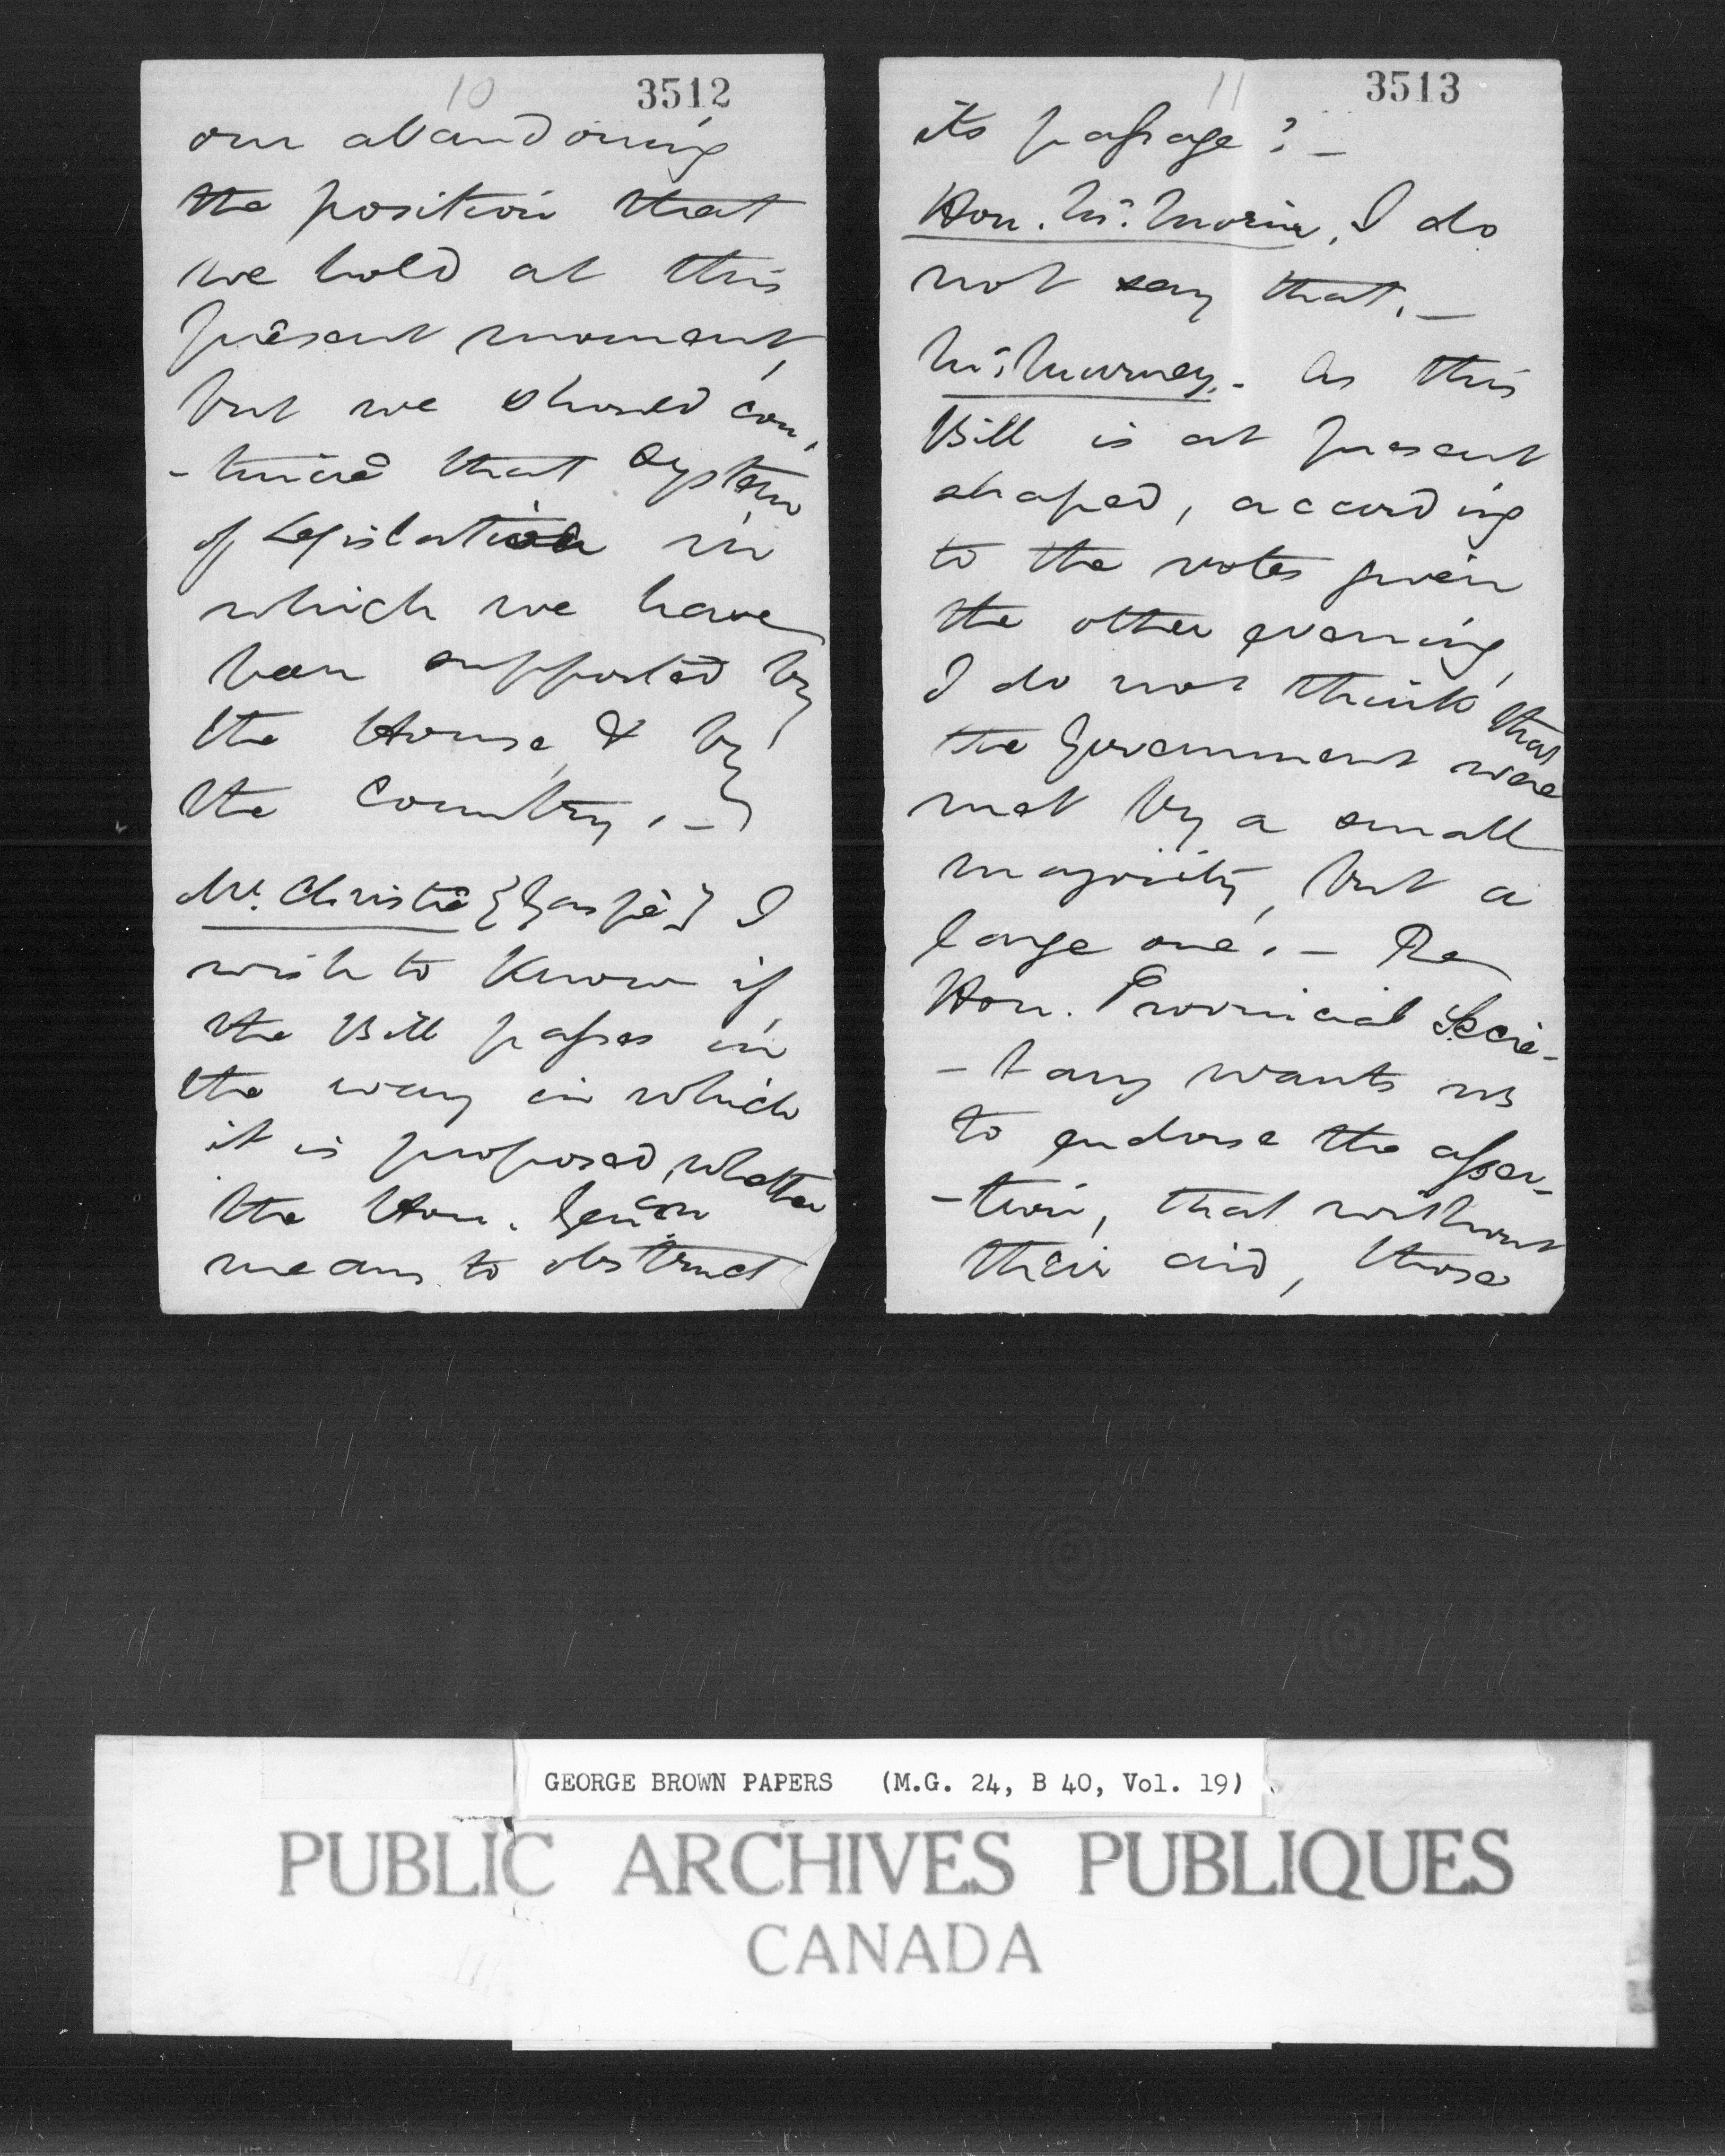 10 3512
our abandoning
the position that
we hold at this
present moment,
but we should con-
-tinue that System
of Legislation in
which we have
been supported by
the House, & by
the Country. -
Mr. Christie {Gaspé} I
wish to Know if
the Bill passes in
the way in which
it is proposed, whether
the Hon. Gen
means to obstruct
11 3513
its passage? -
Hon. Mr. Morin, I do
not say that. -
Mr. Murney. - As this
Bill is at present
shaped, according
to the votes given
the other evening,
I do not think that
the Government were
met by a small
majority, but a
large one. - The
Hon. Provincial Secre-
-tary wants us
to endorse the asser-
-tion, that without
their aid, those
GEORGE BROWN PAPERS (M.G. 24, B 40, Vol. 19)
PUBLIC ARCHIVES PUBLIQUES
CANADA